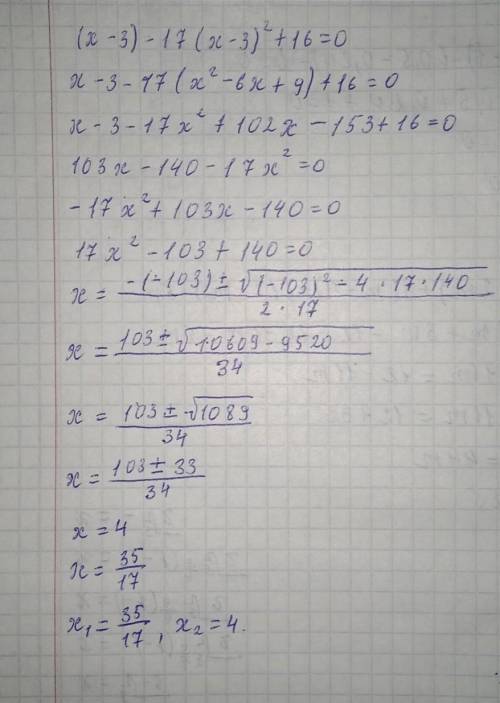 (x-3)-17(x-3)²+16=0
x-3-17(x²-6x+9)+16=0
x-3-17x²+102x-153+16=0
103x-140-17x²=0
-17x²+103x-140=0
17x²-103+140=0
x = \frac{-(-103)±\sqrt{(-103)²-4·17·140}}{2·17}
x = \frac{103±\sqrt{10609-9520}}{34}
x = \frac{103±\sqrt{1089}}{34}
x = \frac{103±33}{34}
x=4
x=\frac{35}{17}
x₁=\frac{35}{17}, x₂=4.